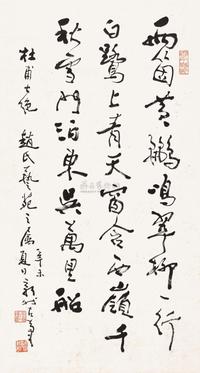 兩箇黃鸝鳴翠柳一行
白鷺上青天窗含西嶺千
秋雪門泊東吳萬里船
杜甫七絕 趙氏藝苑之屬 辛未夏日